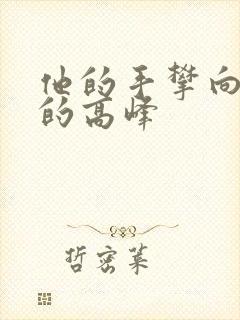 他的手攀向
的高峰
哲密莱